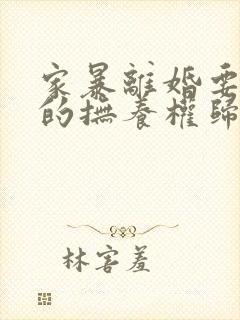 家暴離婚要
的撫養權歸
林害羞